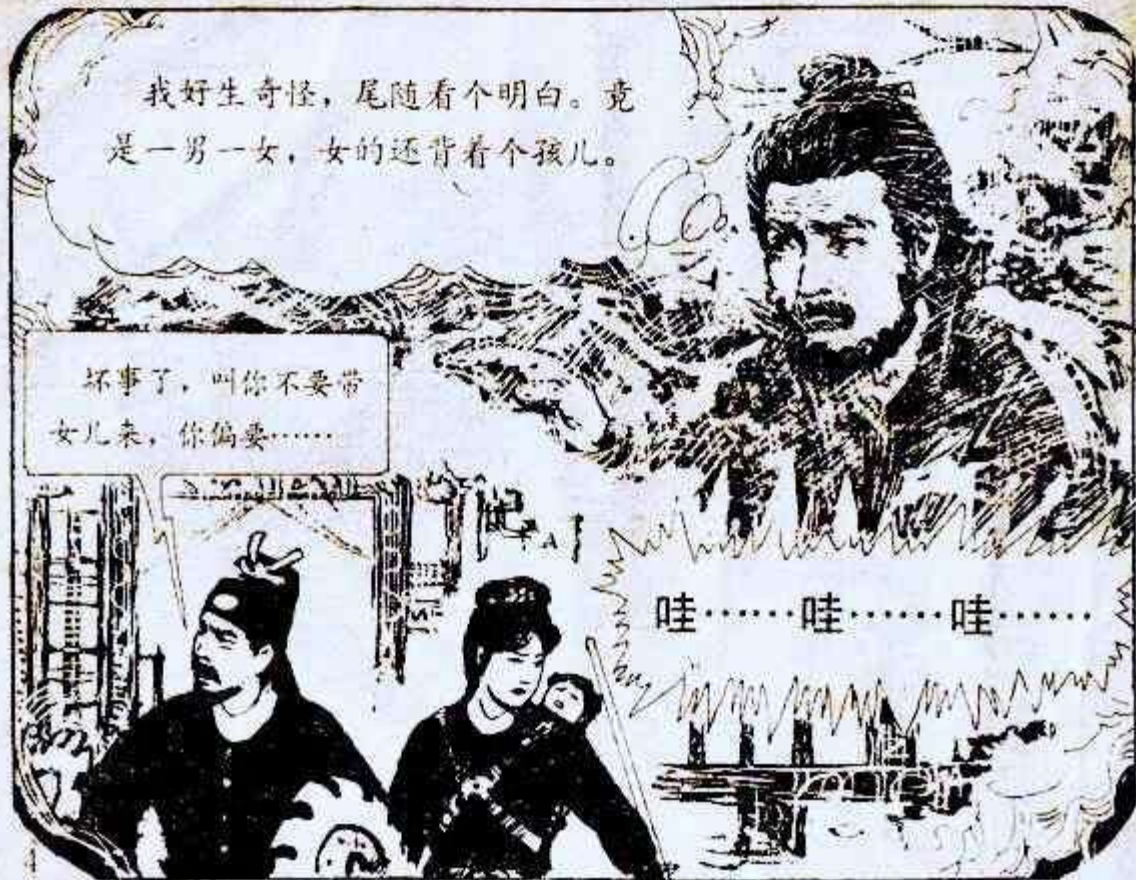 我好生奇怪，尾随看个明白。竟
是一男一女，女的还背着个孩儿。
坏事了，叫你不要带
女儿来，你偏要……
哇……哇……哇……